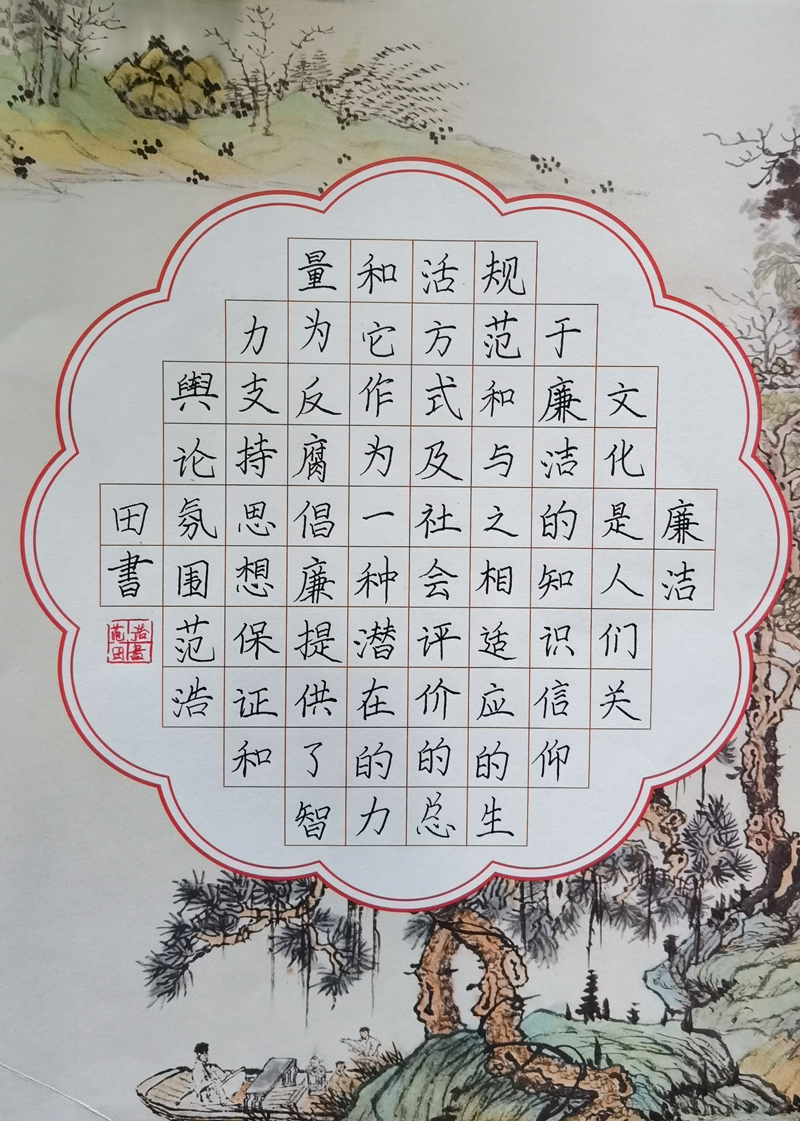 廉洁
文化是人们关
于廉洁的知识信仰
规范和与之相适应的生
活方式及社会评价的总
和它作为一种潜在的力
量为反腐倡廉提供了智
力支持思想保证和
舆论氛围范浩
田書